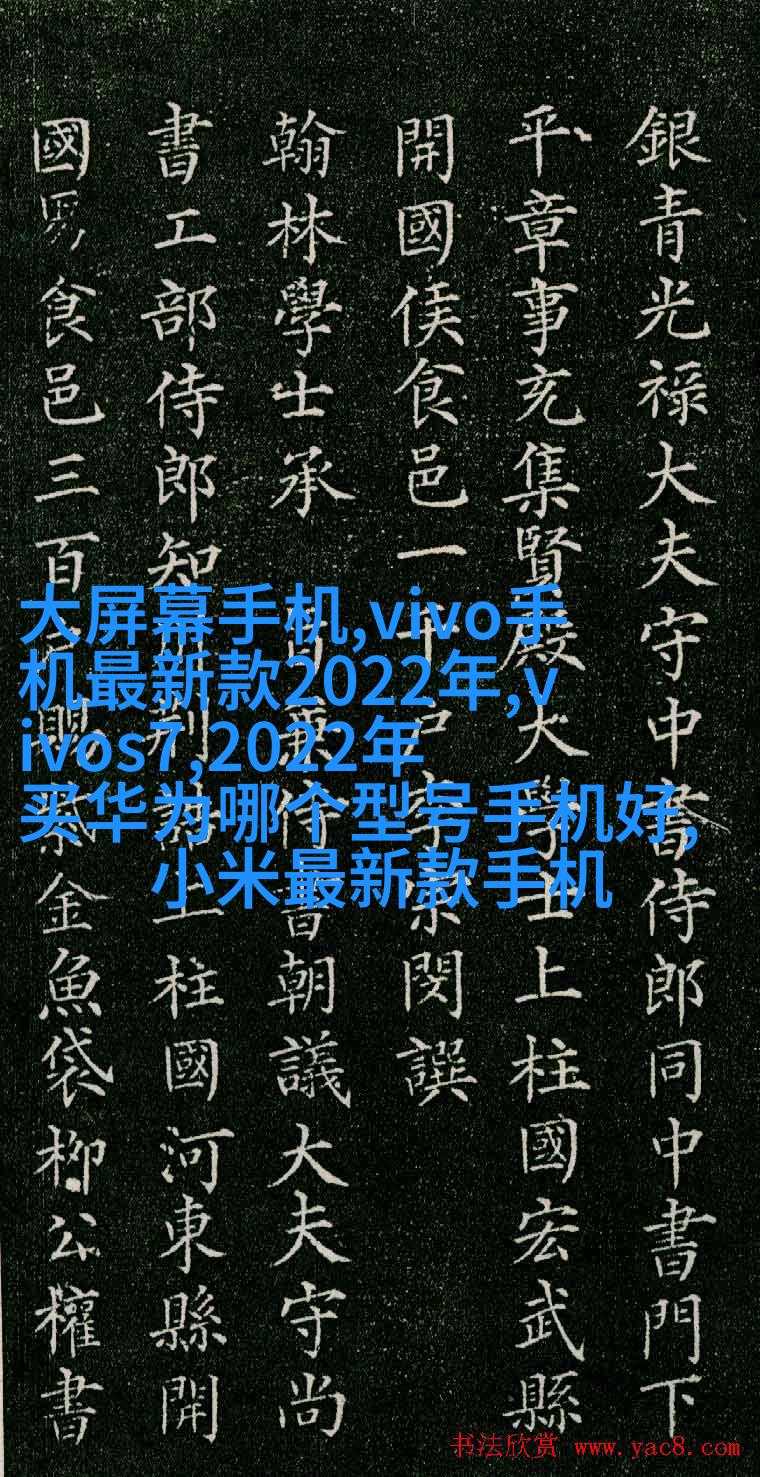 銀青光禄大夫守中書侍郎同中書門下
平章事充集賢殿大學士上柱國宏武縣
開國侯食邑一千戶李宗閔譔
翰林學士承旨兼侍書朝議大夫守尚
書工部侍郎知制誥上柱國河東縣開
國男食邑三百戶賜紫金魚袋柳公權書
大屏幕手机,vivo手
机最新款2022年,v
ivos7,2022年
买华为哪个型号手机好,
小米最新款手机
书法欣赏 www.yac8.com